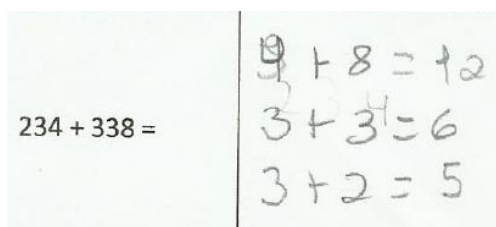 234 + 338 =
4 + 8 = 12
3 + 3 = 6
3 + 2 = 5